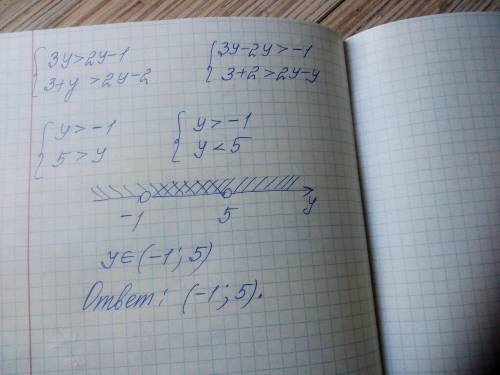 {3y>2y-1 {3y-2y>-1
{3+y>2y-2 {3+2>2y-y
{y>-1 {y>-1
{5>y {y<5
-1 5 y
y∈(-1; 5)
Ответ: (-1; 5).